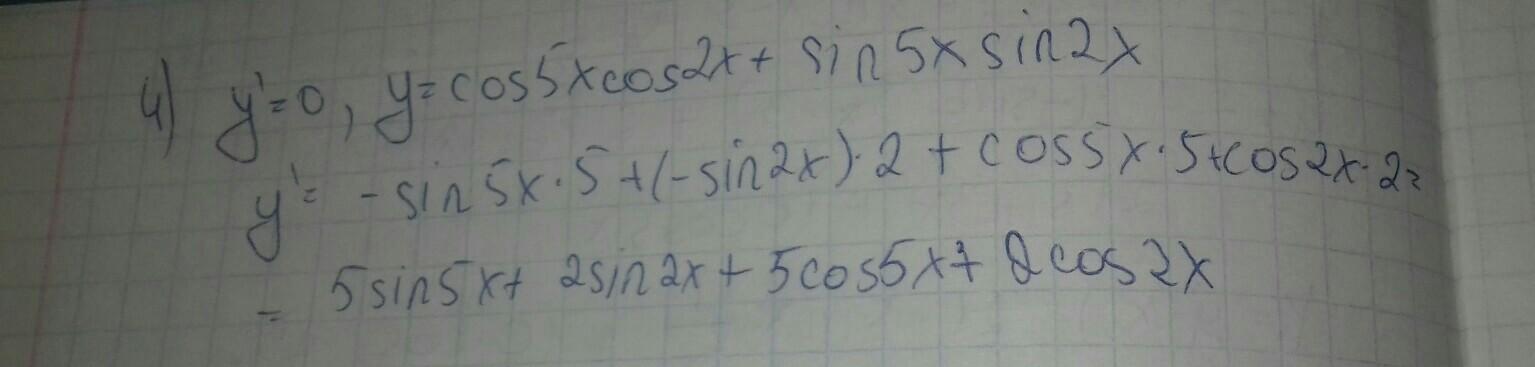 4) y'=0, y=cos5xcos2x+ sin5x sin2x
y'= -sin5x·5+(-sin2x)·2+cos5x·5+cos2x·2=
= 5sin5x+ 2sin2x+5cos5x+ 2cos2x